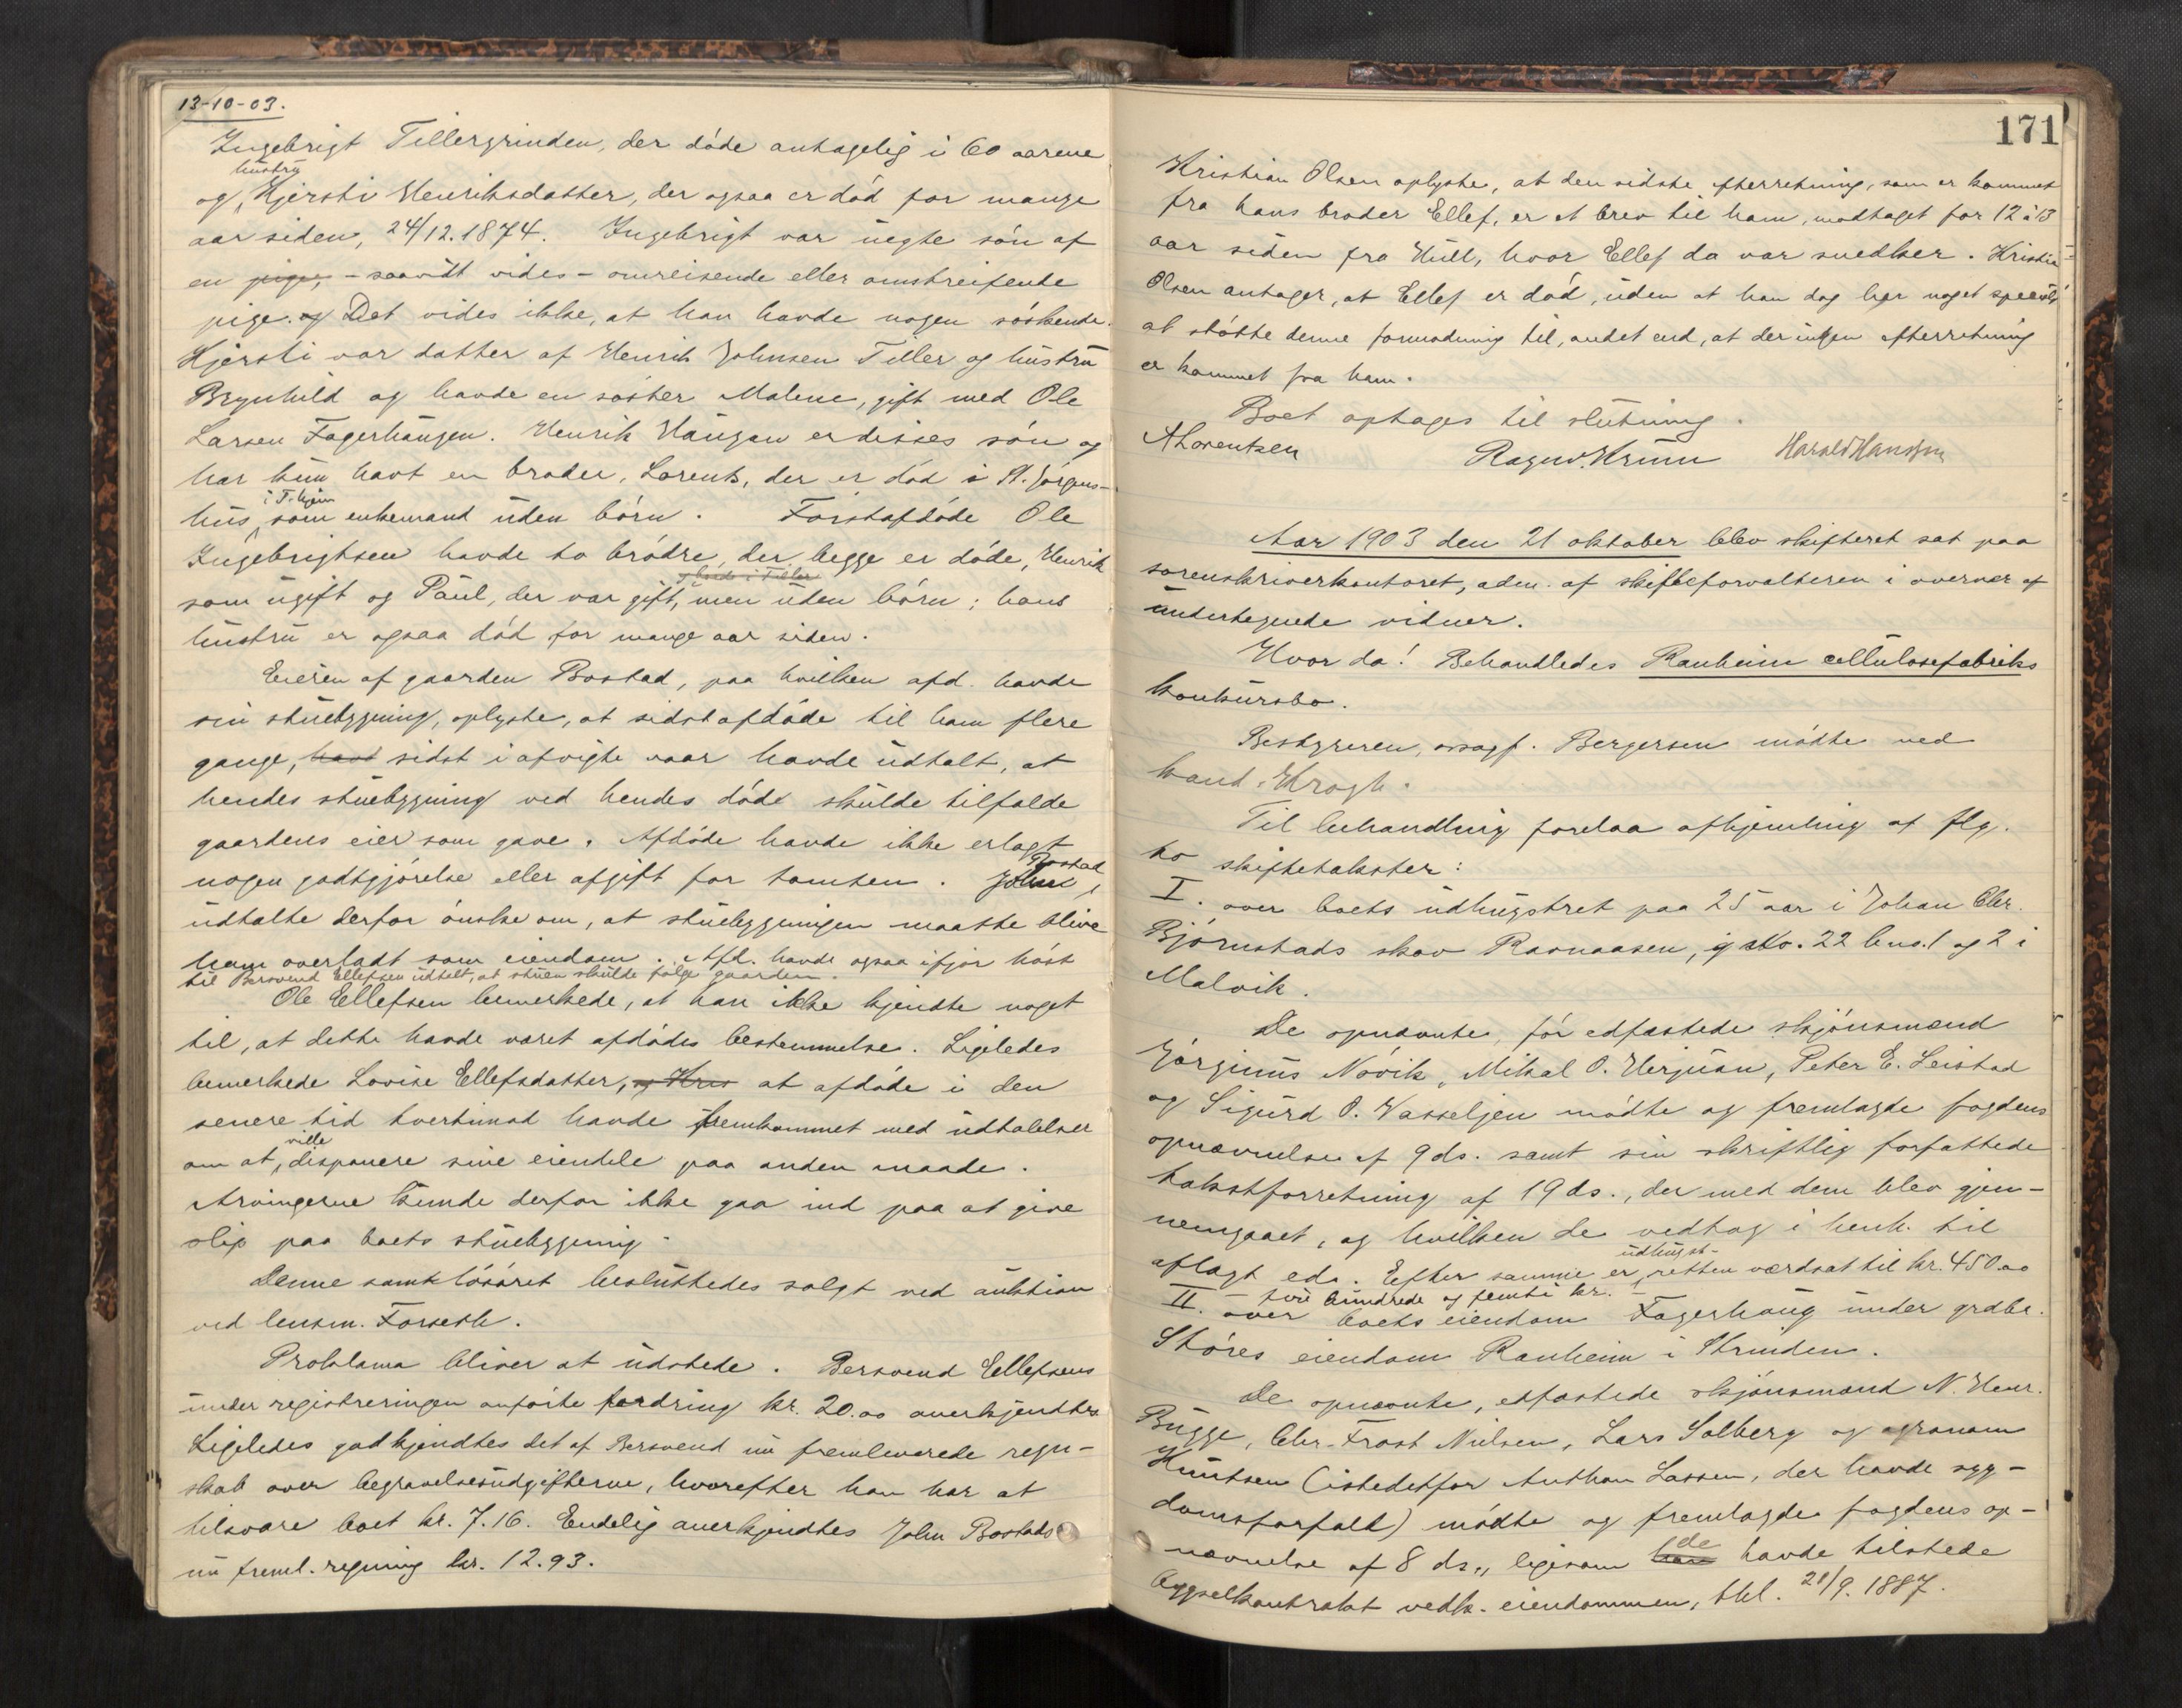 13-10-03.
Ingebrigt Tillergrinden, der døde antagelig i 60 aarene
hustru
og Kjersti Henriksdatter, der ogsaa er død for mange
aar siden, 24/12.1874. Ingebrigt var uegte søn af
en pige, - saavidt vides - omreisende eller omstreifende
pige. og Det vides ikke, at han havde nogen søskende.
Kjersti var datter af Henrik Johnsen Tiller og hustru
Brynhild og havde en søster Malene, gift med Ole
Larsen Fagerhaugen. Henrik Haugan er disses søn og
har kun havt en broder, Lorents, der er død i St. Jørgens-
i T.hjem
hus som enkemand uden børn. Førstafdøde Ole
Ingebrigtsen havde to brødre, der begge er døde, Henrik
og boede i Tiller
som ugift og Paul, der var gift, men uden børn; hans
hustru er ogsaa død for mange aar siden.
Eieren af gaarden Rostad, paa hvilken afd. havde
sin stuebygning, oplyste, at sidstafdøde til ham flere
gange, havt sidst i afvigte vaar havde udtalt, at
hendes stuebygning ved hendes død skulde tilfalde
gaardens eier som gave. Afdøde havde ikke erlagt
Rostad
nogen godtgjørelse eller afgift for tomten. John
udtalte derfor ønske om, at stuebygningen maatte blive
ham overladt som eiendom. Afd. havde ogsaa ifjor høst
til Bersvend Ellefsen udtalt, at stuen skulde følge gaarden.
Ole Ellefsen bemerkede, at han ikke kjendte noget
til, at dette havde været afdødes bestemmelse. Ligeledes
bemerkede Lovise Ellefsdatter, og Kris at afdøde i den
senere tid tvertimod havde fremkommet med udtalelser
ville
om at disponere sine eiendele paa anden maade.
Arvingerne kunde derfor ikke gaa ind paa at give
slip paa boets stuebygning.
Denne samt løsøret besluttedes solgt ved auktion
ved lensm. Forseth.
Proklama bliver at udstede. Bersvend Ellefsens
under registreringen anførte fordring kr. 20.00 anerkjendtes.
Ligeledes godkjendtes det af Bersvend nu fremleverede regn-
skab over begravelsesudgifterne, hvorefter han har at
tilsvare boet kr. 7.16. Endelig anerkjendtes John Rostads
nu freml. regning kr. 12.93.
171
Kristian Olsen oplyste, at den sidste efterretning, som er kommet
fra hans broder Ellef, er et brev til ham, modtaget for 12 à 13
aar siden fra Hull, hvor Ellef da var snedker. Kristian
Olsen antager, at Ellef er død, uden at han dog har noget specielt
at støtte denne formodning til, andet end, at der ingen efterretning
er kommet fra ham.
Boet optages til slutning.
A Lorentzen Ragnv. Krum Harald Hansen
Aar 1903 den 21 oktober blev skifteret sat paa
sorenskriverkontoret, adm. af skifteforvalteren i overvær af
undertegnede vidner.
Hvor da! Behandledes Ranheim cellulosefabriks
konkursbo.
Bestyreren, ovsagf. Bergersen mødte ved
kand. Krogh.
Til behandling forelaa afhjemling af flg.
to skiftetakster:
I. over boets udhugstret paa 25 aar i Johan Chr.
Bjørnstads skov Ravnaasen, g. No. 22 bno. 1 og 2 i
Malvik.
De opnævnte, før edfæstede skjønsmænd
Jørginus Nøvik, Mikal O. Herjuan, Peter E. Leistad
og Sigurd O. Vasseljen mødte og fremlagde fogdens
opnævnelse af 9 ds. samt sin skriftlig forfattede
takstforretning af 19 ds., der med dem blev gjen-
nemgaaet, og hvilken de vedtog i henh. til
udhugst-
aflagt ed. Efter samme er retten værdsat til kr. 450.00
- fire hundrede og femti kr. -
II. over boets eiendom Fagerhaug under grdbr.
Støres eiendom Ranheim i Strinden.
De opnævnte, edfæstede skjønsmænd N. Henr.
Bugge, Chr. Frost Nielsen, Lars Solberg og agronom
Knutsen (istedetfor Anthon Lassen, der havde syg-
domsforfald) mødte og fremlagde fogdens op-
de
nævnelse af 8 ds., ligesom han havde tilstede
bygselkontrakt vedk. eiendommen, thl. 21/9. 1887.